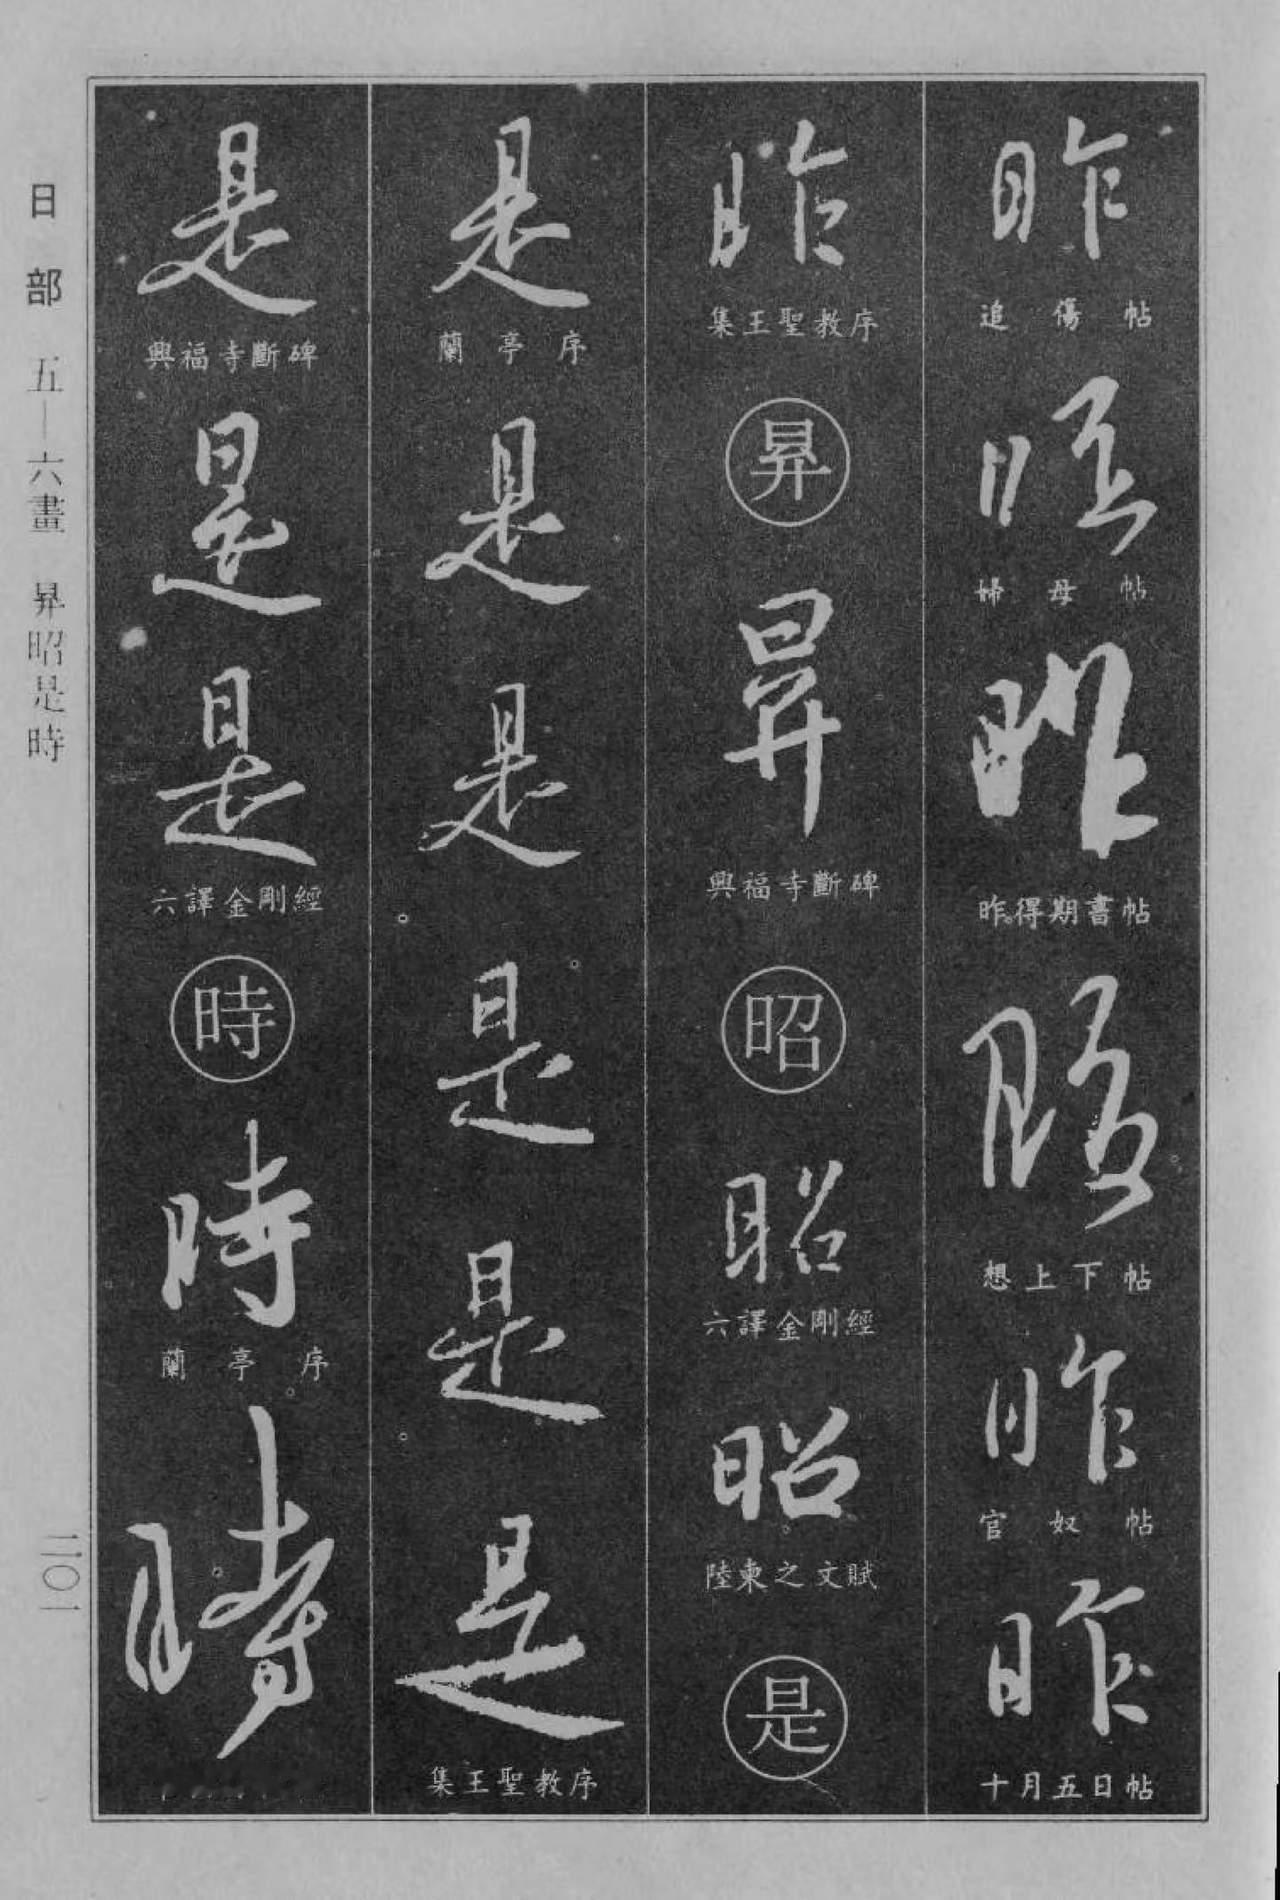 昨
追傷帖
昨
婦母帖
昨
昨得期書帖
昨
想上下帖
昨
官奴帖
昨
十月五日帖
昨
集王聖教序
昇
昇
興福寺斷碑
昭
昭
六譯金剛經
昭
陸柬之文賦
是
是
蘭亭序
是
是
是
是
是
集王聖教序
是
興福寺斷碑
是
是
六譯金剛經
時
時
蘭亭序
時
日部 五—六畫 昇昭是時
二〇一